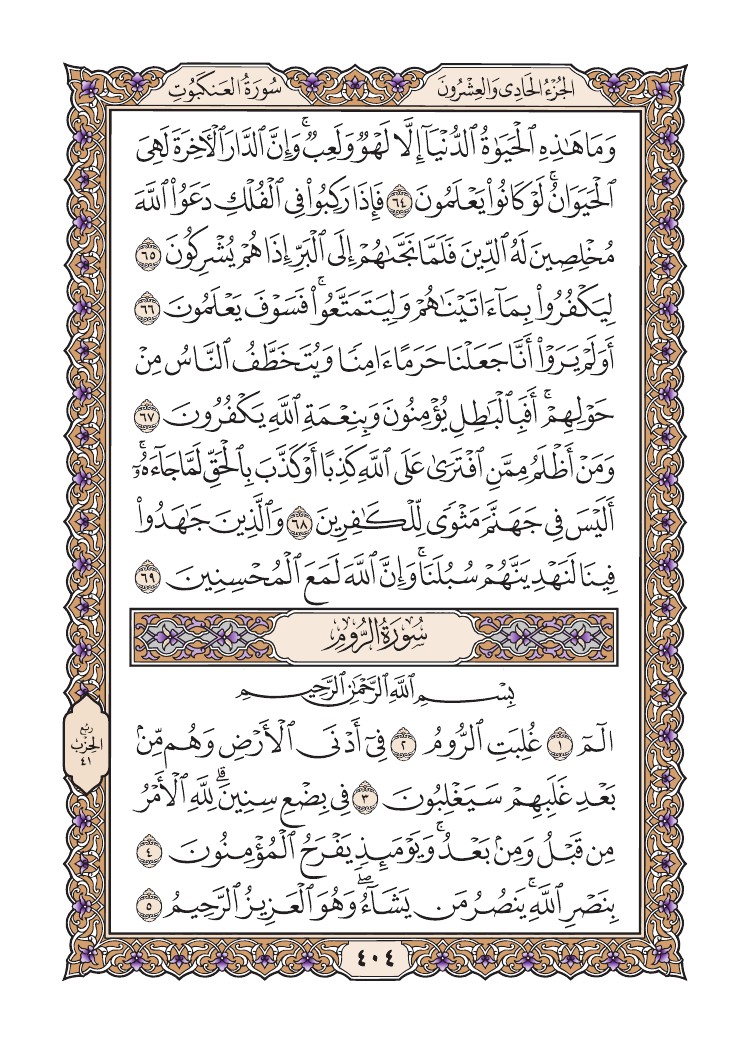 سُورَةُ العَنكَبُوتِ
الجُزْءُ الحَادِى وَالعِشْرُونَ
وَمَا هَٰذِهِ ٱلْحَيَوٰةُ ٱلدُّنْيَآ إِلَّا لَهْوٌ وَلَعِبٌ ۚ وَإِنَّ ٱلدَّارَ ٱلْأَخِرَةَ لَهِىَ
ٱلْحَيَوَانُ ۚ لَوْ كَانُوا۟ يَعْلَمُونَ ٦٤ فَإِذَا رَكِبُوا۟ فِى ٱلْفُلْكِ دَعَوُا۟ ٱللَّهَ
مُخْلِصِينَ لَهُ ٱلدِّينَ فَلَمَّا نَجَّىٰهُمْ إِلَى ٱلْبَرِّ إِذَا هُمْ يُشْرِكُونَ ٦٥
لِيَكْفُرُوا۟ بِمَآ ءَاتَيْنَٰهُمْ وَلِيَتَمَتَّعُوا۟ ۚ فَسَوْفَ يَعْلَمُونَ ٦٦
أَوَلَمْ يَرَوْا۟ أَنَّا جَعَلْنَا حَرَمًا ءَامِنًا وَيُتَخَطَّفُ ٱلنَّاسُ مِنْ
حَوْلِهِمْ ۚ أَفَبِٱلْبَٰطِلِ يُؤْمِنُونَ وَبِنِعْمَةِ ٱللَّهِ يَكْفُرُونَ ٦٧
وَمَنْ أَظْلَمُ مِمَّنِ ٱفْتَرَىٰ عَلَى ٱللَّهِ كَذِبًا أَوْ كَذَّبَ بِٱلْحَقِّ لَمَّا جَآءَهُۥٓ ۚ
أَلَيْسَ فِى جَهَنَّمَ مَثْوًى لِّلْكَٰفِرِينَ ٦٨ وَٱلَّذِينَ جَٰهَدُوا۟
فِينَا لَنَهْدِيَنَّهُمْ سُبُلَنَا ۚ وَإِنَّ ٱللَّهَ لَمَعَ ٱلْمُحْسِنِينَ ٦٩
سُورَةُ الرُّومِ
بِسْمِ ٱللَّهِ ٱلرَّحْمَٰنِ ٱلرَّحِيمِ
الٓمٓ ١ غُلِبَتِ ٱلرُّومُ ٢ فِىٓ أَدْنَى ٱلْأَرْضِ وَهُم مِّنۢ
بَعْدِ غَلَبِهِمْ سَيَغْلِبُونَ ٣ فِى بِضْعِ سِنِينَ ۗ لِلَّهِ ٱلْأَمْرُ
مِن قَبْلُ وَمِنۢ بَعْدُ ۚ وَيَوْمَئِذٍ يَفْرَحُ ٱلْمُؤْمِنُونَ ٤
بِنَصْرِ ٱللَّهِ ۚ يَنصُرُ مَن يَشَآءُ ۖ وَهُوَ ٱلْعَزِيزُ ٱلرَّحِيمُ ٥
رُبْع
الحِزْبِ
٤١
٤٠٤